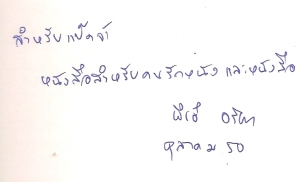 สำหรับแป๊ดจ๋า
หนังสือสำหรับคนรักหนัง และหนังสือ
ตุลาคม 50